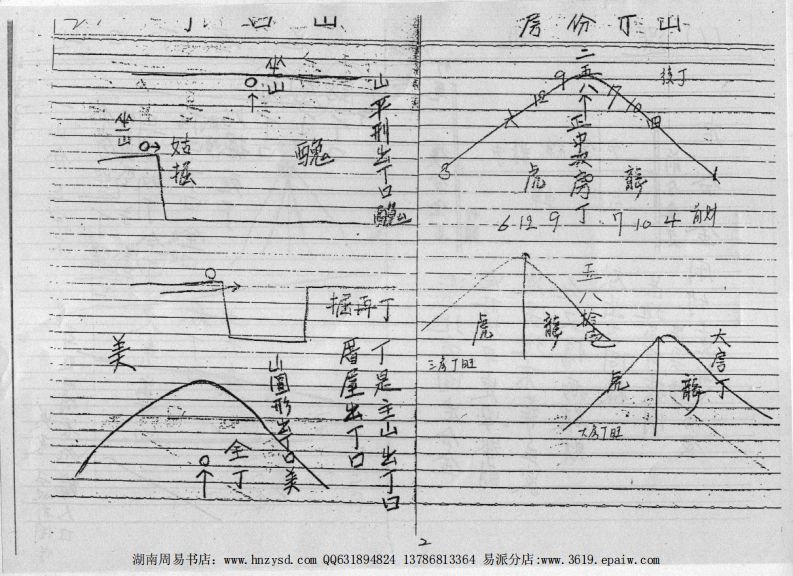 房份丁山
二五八个正中敦房丁
後丁
9
12
7
10
四
3
虎
龍
6 12 9 7 10 4 前财
虎
龍
三房丁旺
大房丁
虎
龍
大房丁旺
坐山
山平形出丁口醜
醜
坐山
掘
掘再丁
丁是主山出丁口
厝屋出丁口
山圓形出丁口美
美
全丁
2
湖南周易书店: www.hnzysd.com QQ631894824 13786813364 易派分店:www.3619.epaiw.com